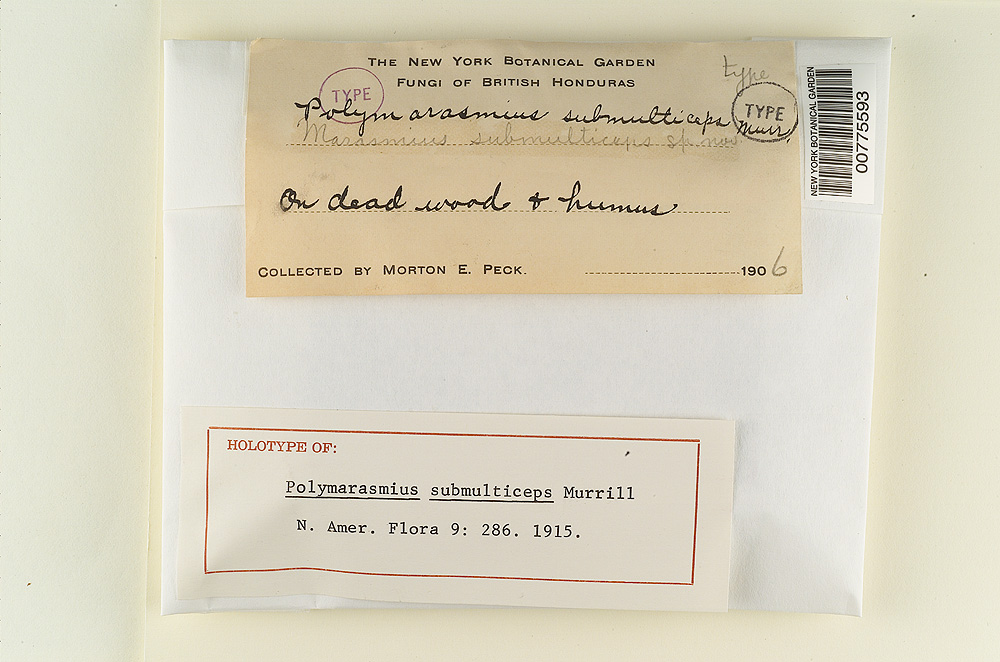 THE NEW YORK BOTANICAL GARDEN
FUNGI OF BRITISH HONDURAS
type
TYPE
TYPE
Polymarasmius submulticeps Murr.
Marasmius submulticeps sp nov.
On dead wood & humus
COLLECTED BY MORTON E. PECK. 1906
NEW YORK BOTANICAL GARDEN
00775593
HOLOTYPE OF:
Polymarasmius submulticeps Murrill
N. Amer. Flora 9: 286. 1915.